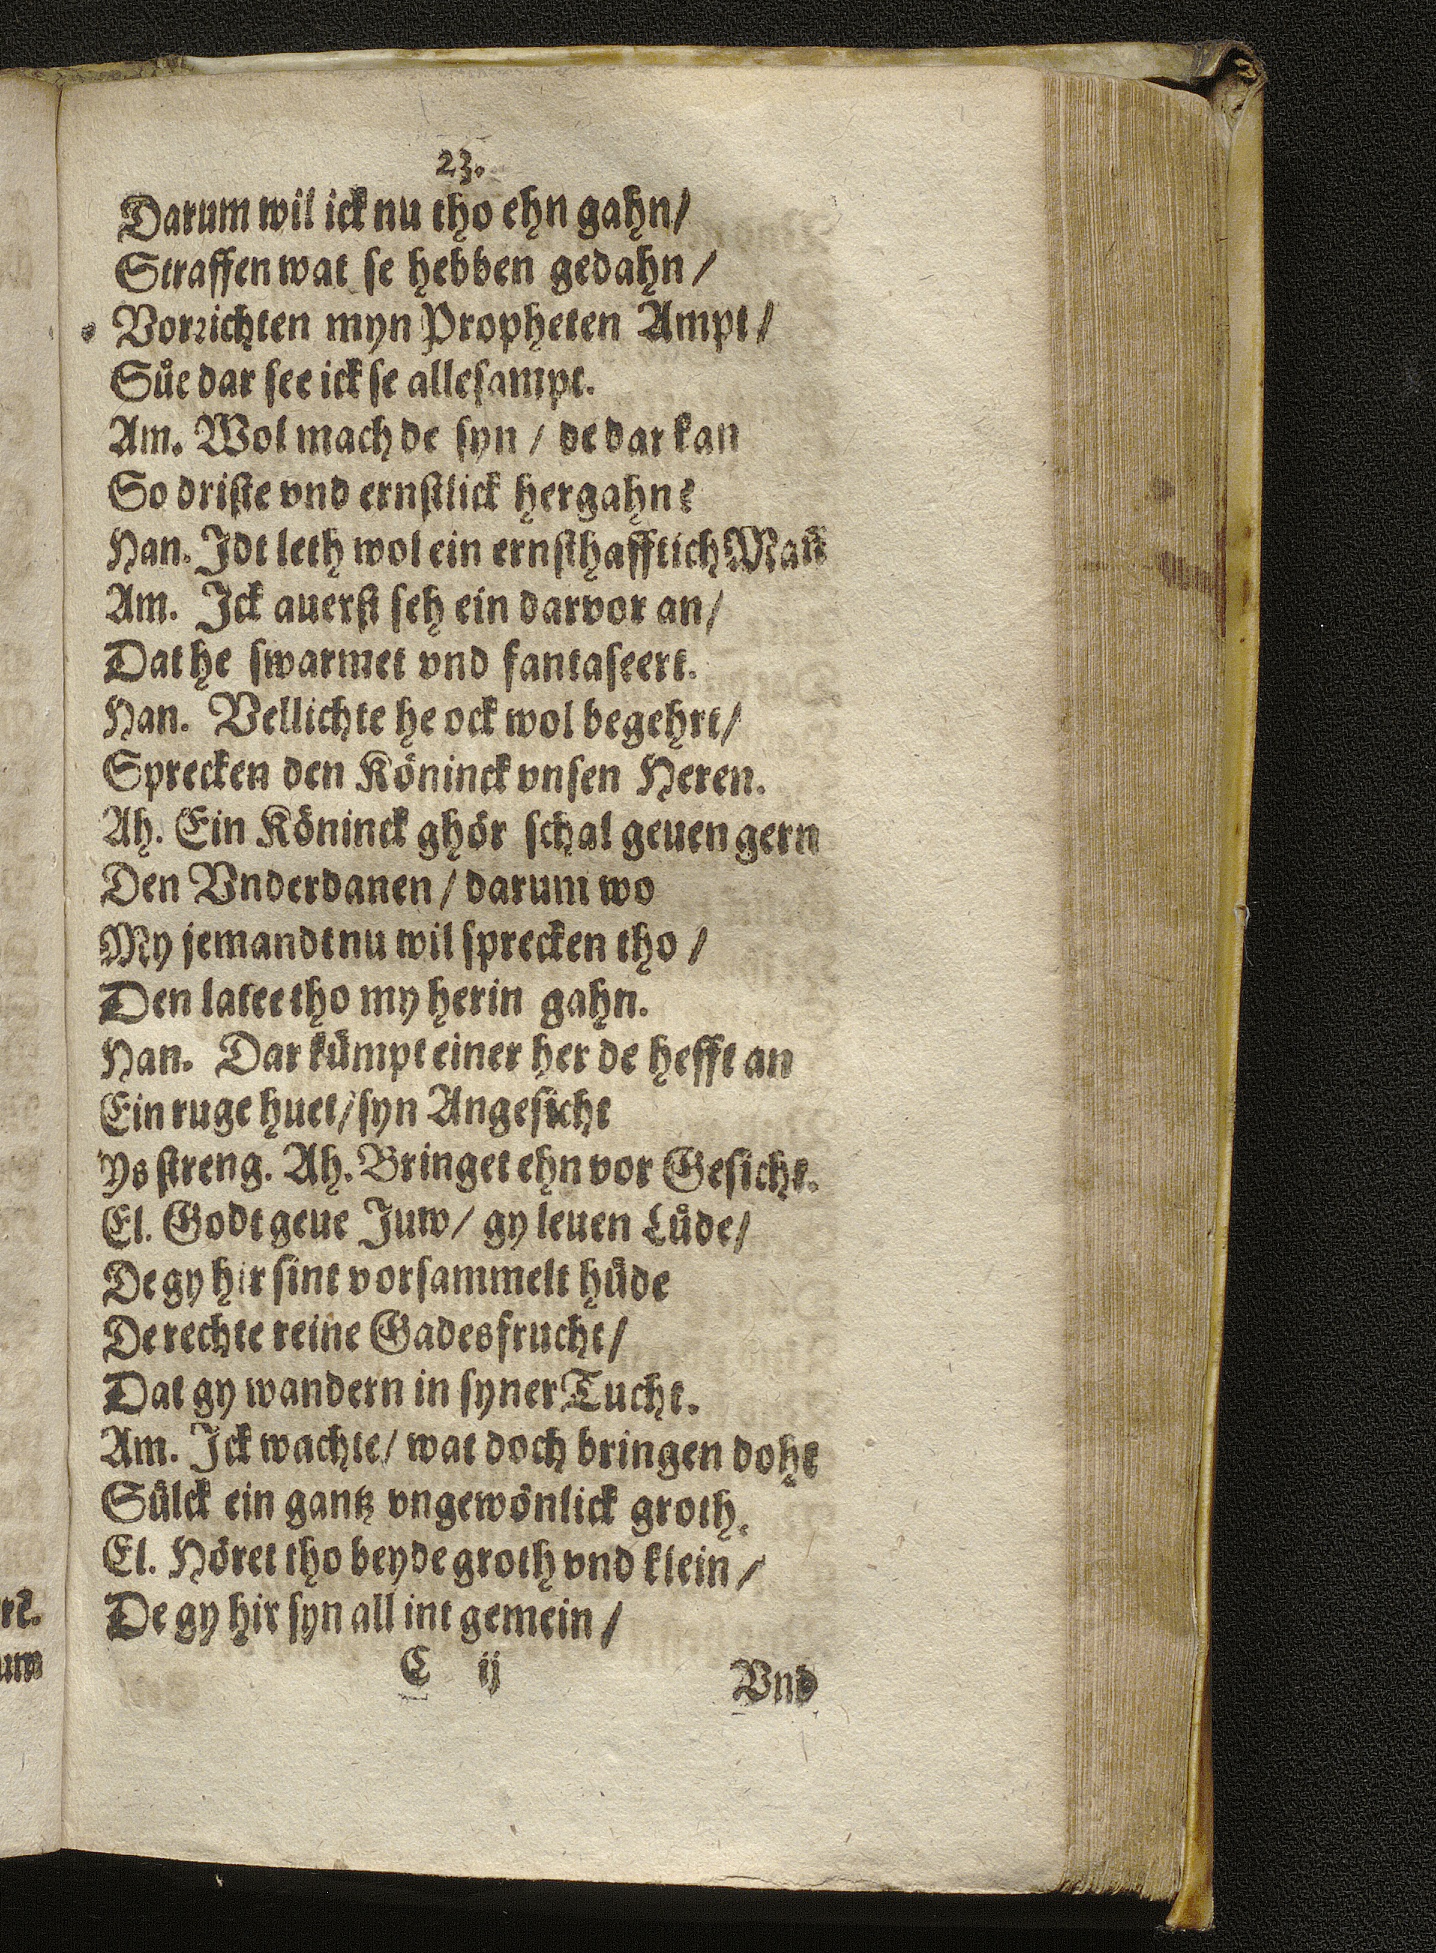 23.
Darum wil ick nu tho ehn gahn/
Straffen wat se hebben gedahn/
Vorrichten myn Propheten Ampt/
Suͤe dar see ick se allesampt.
Am. Wol mach de syn/ de dar kan
So driste vnd ernstlick hergahn?
Han. Idt leth wol ein ernsthafftich Man̄
Am. Ick auerst seh ein darvor an/
Dat he swarmet vnd fantaseert.
Han. Vellichte he ock wol begehrt/
Sprecken den Köninck vnsen Heren.
Ah. Ein Köninck ghör schal geuen gern
Den Vnderdanen/ darum wo
My jemandt nu wil sprecken tho/
Den latet tho my herin gahn.
Han. Dar kümpt einer her de hefft an
Ein ruge huet/ syn Angesicht
ys streng. Ah. Bringet ehn vor Gesicht.
El. Godt geue Juw/ gy leuen Luͤde/
De gy hir sint vorsammelt huͤde
De rechte reine Gadesfrucht/
Dat gy wandern in syner Tucht.
Am. Ick wachte/ wat doch bringen doht
Suͤlck ein gantz vngewönlick groth.
El. Höret tho beyde groth vnd klein/
De gy hir syn all int gemein/
C ij
Vnd
rt.
um